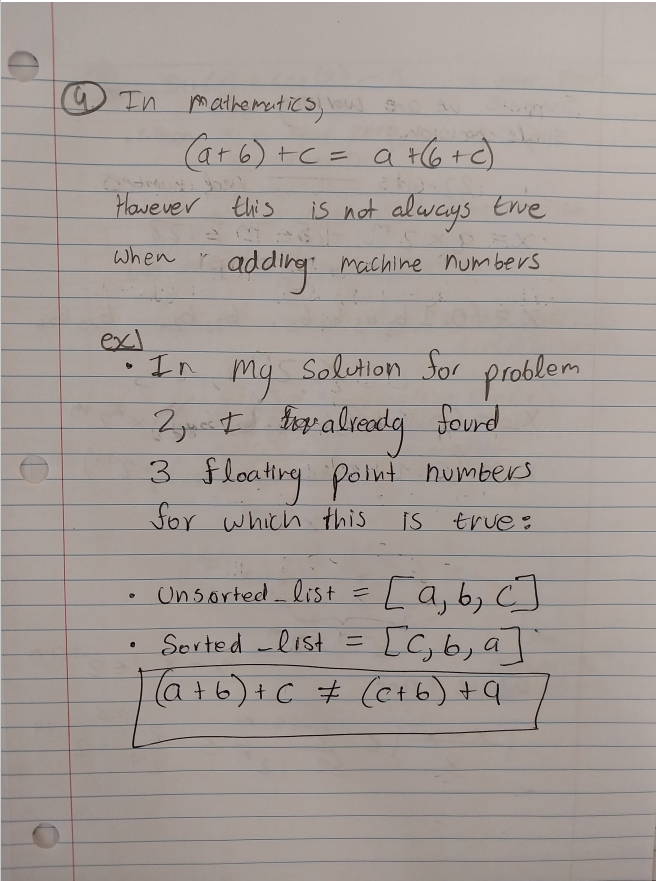 4. In mathematics,
(a+b)+c = a+(b+c)
However this is not always true
when adding machine numbers
ex)
• In my solution for problem
2, I already found
3 floating point numbers
for which this is true:
• Unsorted_list = [a, b, c]
• Sorted_list = [c, b, a]
(a+b)+c ≠ (c+b)+a